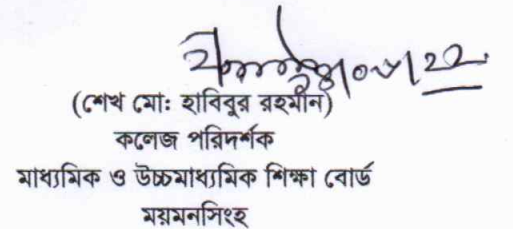 (শেখ মো: হাবিবুর রহমান)
কলেজ পরিদর্শক
মাধ্যমিক ও উচ্চমাধ্যমিক শিক্ষা বোর্ড
ময়মনসিংহ